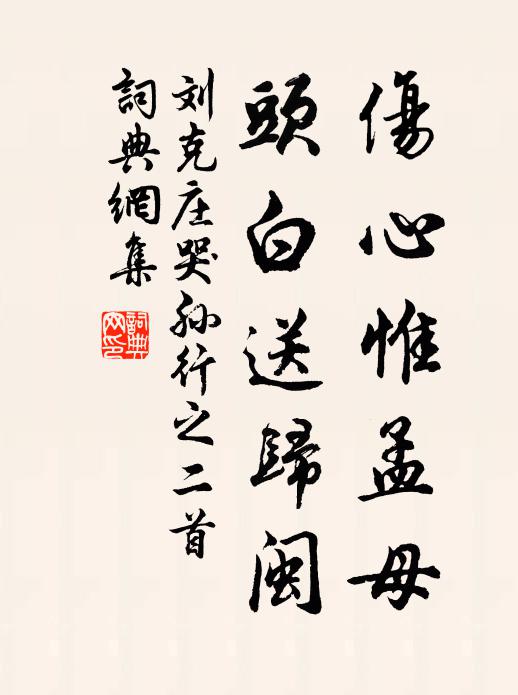 傷心惟孟母
頭白送歸閩
刘克庄哭孙行之二首
詞典網集
詞典网印